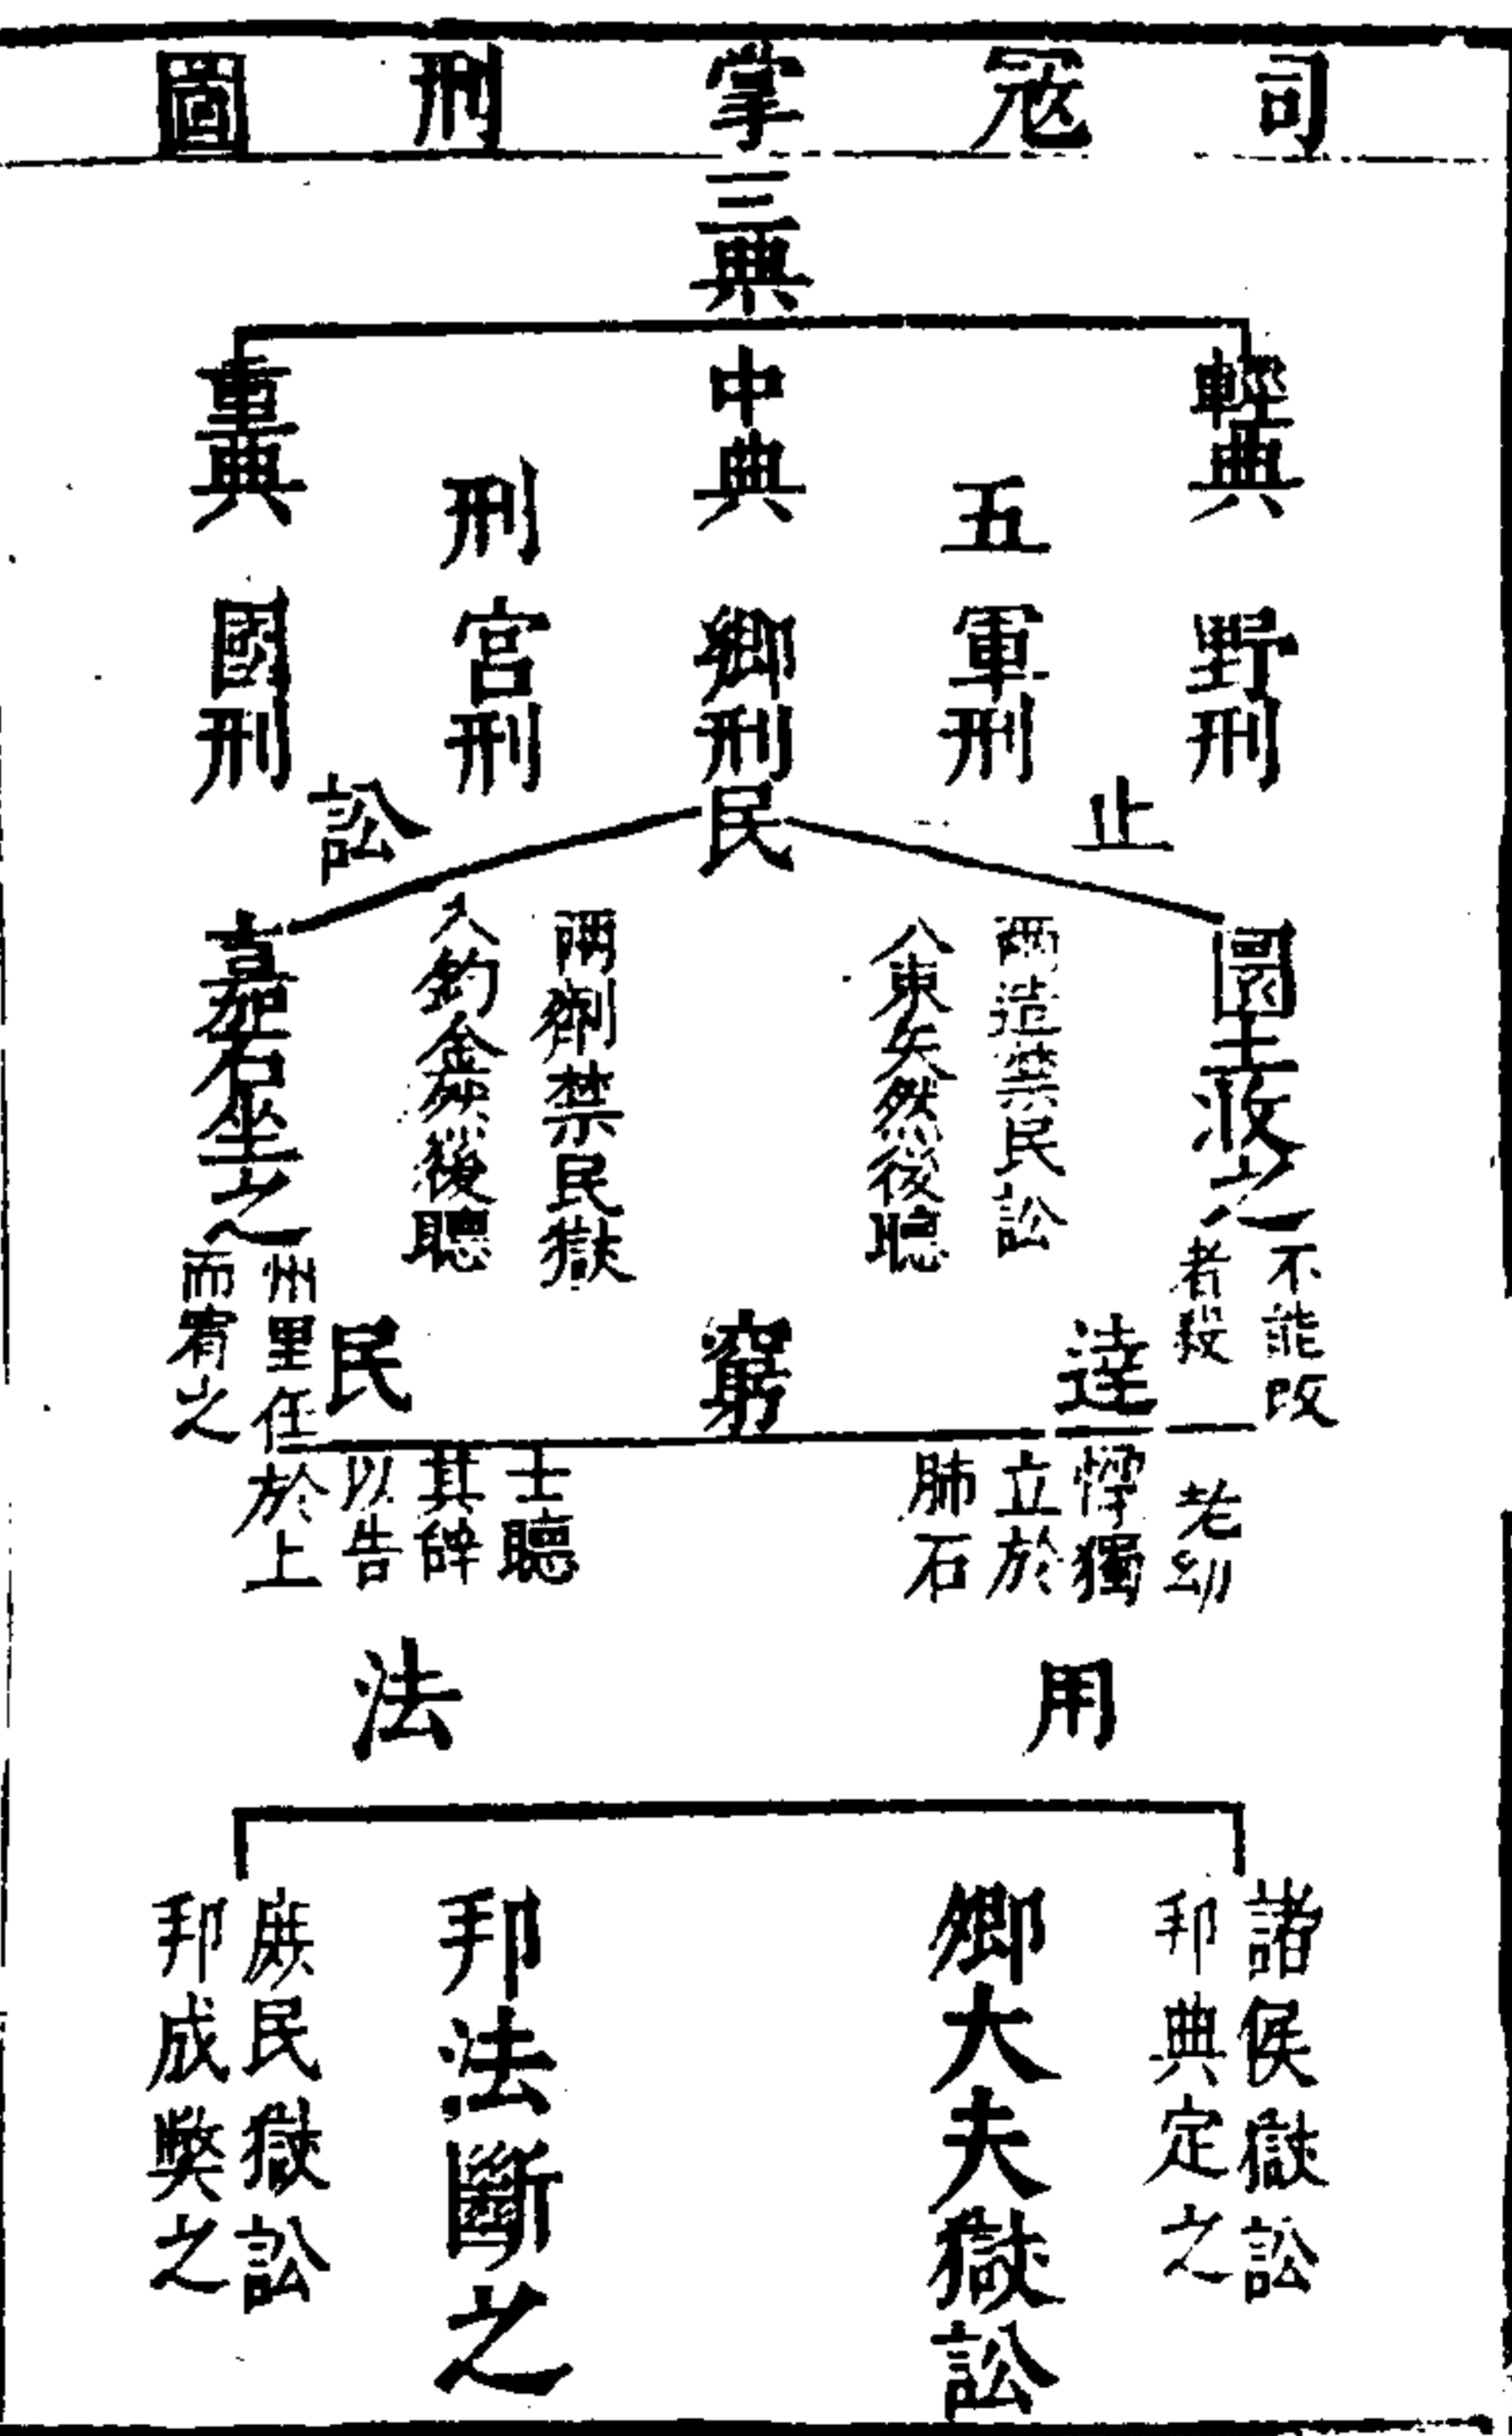 司寇掌刑圖
三典
輕典
中典
重典
五刑
野刑
軍刑
鄉刑
官刑
國刑
止民訟
圜土收之
不能改
者殺
兩造禁民訟
入束矢然後聽
兩劑禁民獄
入鈞金然後聽
嘉石坐之
州里任
而宥之
達窮民
老幼
惸獨
立於
肺石
士聽
其辭
以告
於上
用法
諸侯獄訟
邦典定之
卿大夫獄訟
邦法斷之
庶民獄訟
邦成弊之